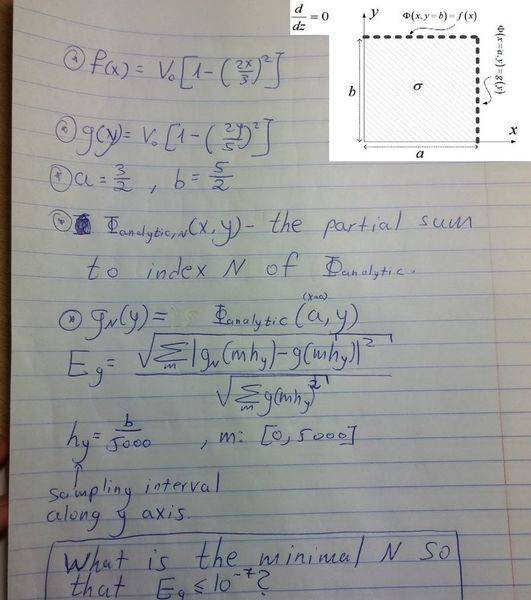 d/dz = 0
y
Φ(x, y = b) = f(x)
Φ(x = a, y) = g(y)
b
σ
x
a
f(x) = V₀[1-(2x/3)²]
g(y) = V₀[1-(2y/5)²]
a = 3/2 , b = 5/2
Φanalytic,N(x, y) - the partial sum
to index N of Φanalytic.
(x=a)
gN(y) = Φanalytic(a, y)
Eg = √(∑m |gN(mhy)-g(mhy)|²) / √(∑m g(mhy)²)
hy = b/5000 , m: [0, 5000]
sampling interval
along y axis.
What is the minimal N so
that Eg ≤ 10⁻⁷?